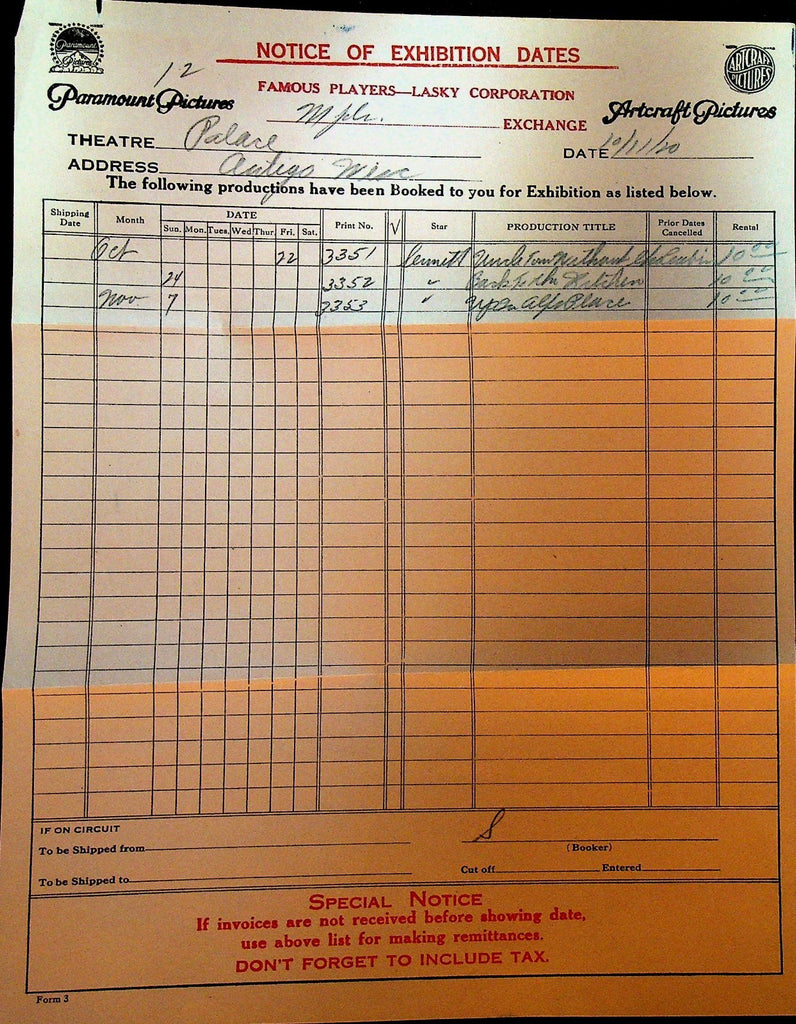 12
Paramount Pictures
NOTICE OF EXHIBITION DATES
ARTCRAFT PICTURES
Paramount Pictures
FAMOUS PLAYERS—LASKY CORPORATION
Artcraft Pictures
Mpls. EXCHANGE
THEATRE Palace
DATE 10/11/20
ADDRESS Antigo Wisc
The following productions have been Booked to you for Exhibition as listed below.
Shipping Date Month DATE Print No. √ Star PRODUCTION TITLE Prior Dates Cancelled Rental
Sun. Mon. Tues. Wed Thur. Fri. Sat.
Oct 22 3351 Sennett Uncle Tom Without Cabin 10 00
24 3352 " Back to the Kitchen 10 00
Nov 7 3353 " 10 00
IF ON CIRCUIT
S
To be Shipped from
(Booker)
Cut off Entered
To be Shipped to
SPECIAL NOTICE
If invoices are not received before showing date,
use above list for making remittances.
DON'T FORGET TO INCLUDE TAX.
Form 3